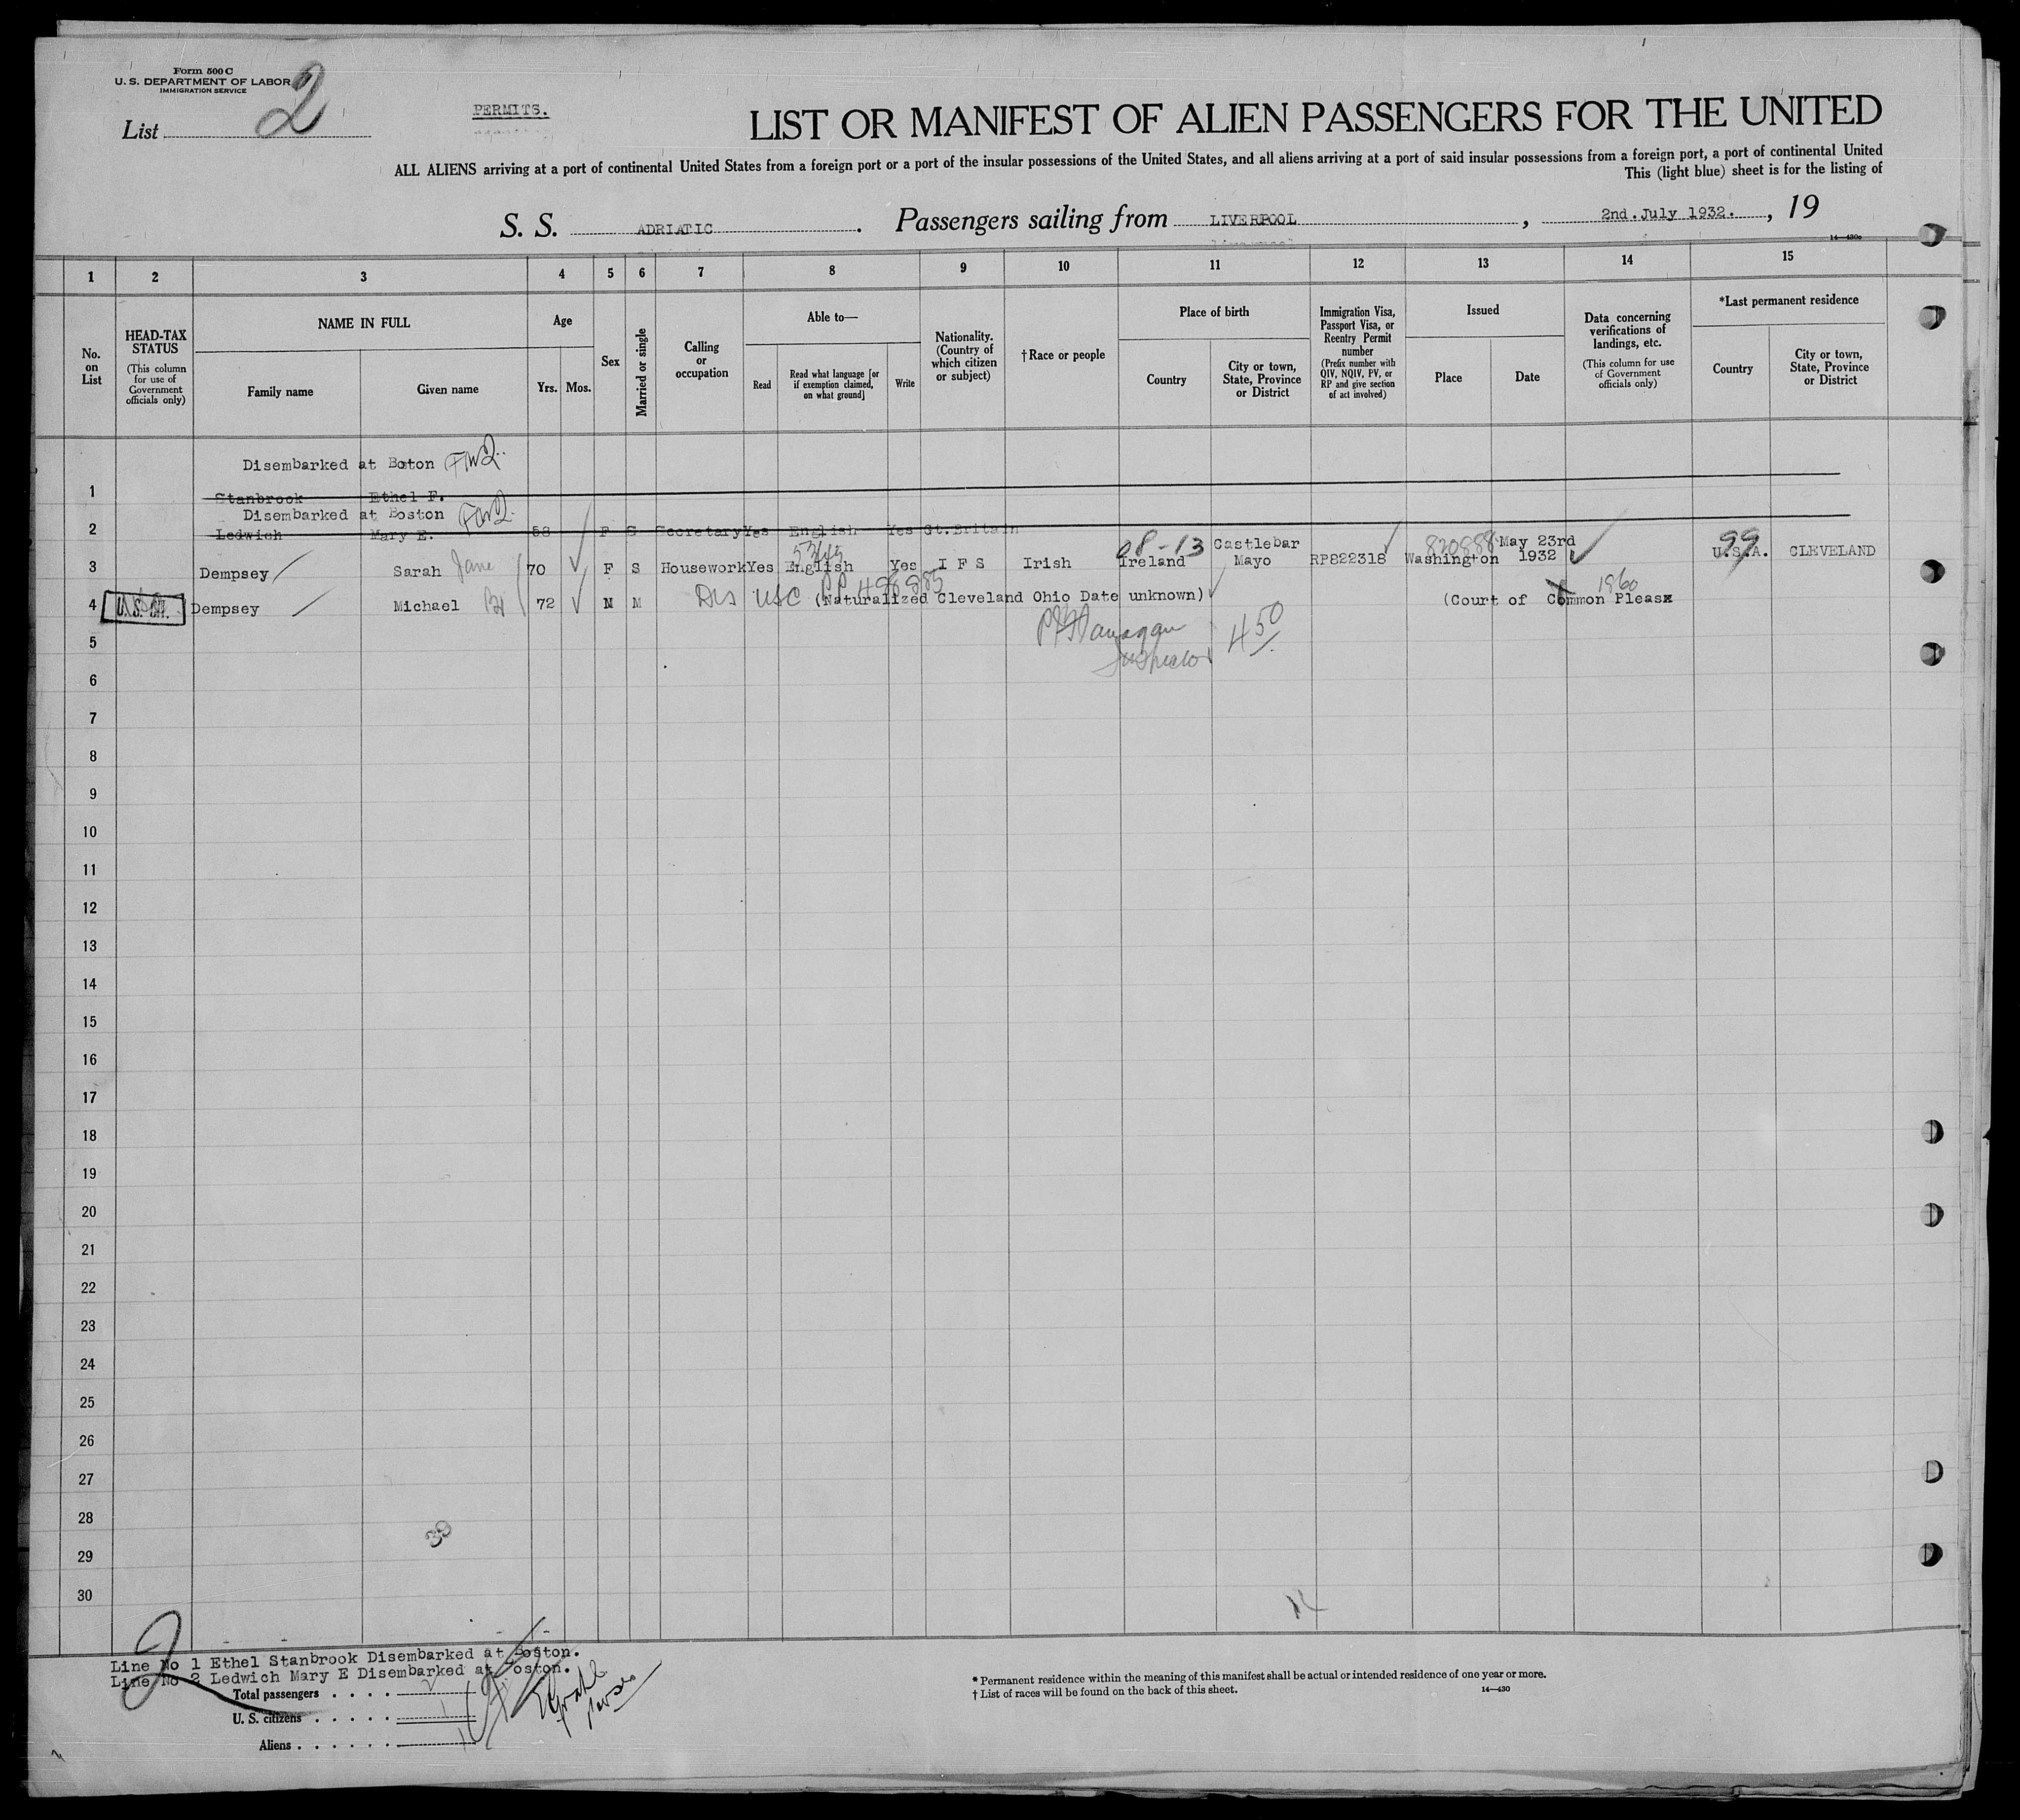 Form 500 C
U. S. DEPARTMENT OF LABOR
IMMIGRATION SERVICE
List 2
PERMITS.
LIST OR MANIFEST OF ALIEN PASSENGERS FOR THE UNITED
ALL ALIENS arriving at a port of continental United States from a foreign port or a port of the insular possessions of the United States, and all aliens arriving at a port of said insular possessions from a foreign port, a port of continental United
This (light blue) sheet is for the listing of
S. S. ADRIATIC. Passengers sailing from LIVERPOOL, 2nd. July 1932., 19
14—430c
1 2 3 4 5 6 7 8 9 10 11 12 13 14 15
No. on List
HEAD-TAX STATUS (This column for use of Government officials only)
NAME IN FULL
Family name
Given name
Age
Yrs. Mos.
Sex
Married or single
Calling or occupation
Able to—
Read
Read what language [or if exemption claimed, on what ground]
Write
Nationality. (Country of which citizen or subject)
†Race or people
Place of birth
Country
City or town, State, Province or District
Immigration Visa, Passport Visa, or Reentry Permit number (Prefix number with QIV, NQIV, PV, or RP and give section of act involved)
Issued
Place
Date
Data concerning verifications of landings, etc. (This column for use of Government officials only)
*Last permanent residence
Country
City or town, State, Province or District
Disembarked at Boton
1 Stanbrook Ethel F.
Disembarked at Boston
2 Ledwich Mary E. 58 F S Secretary Yes English Yes Gt.Britain
5345 08-13 Castlebar 820888 May 23rd 99
3 Dempsey Sarah Jane 70 F S Housework Yes English Yes I F S Irish Ireland Mayo RP822318 Washington 1932 U.S.A. CLEVELAND
Dis USC PP 496985 1960
4 U.S.CIT. Dempsey Michael 72 M M (Naturalized Cleveland Ohio Date unknown) (Court of Common Pleas
5 450
Inspector
6
7
8
9
10
11
12
13
14
15
16
17
18
19
20
21
22
23
24
25
26
27
28
29
30
30
2
Line No 1 Ethel Stanbrook Disembarked at Boston.
Line No 2 Ledwich Mary E Disembarked at Boston.
Total passengers . . . . 2
U. S. citizens . . . . . 1
Aliens . . . . . . 1
* Permanent residence within the meaning of this manifest shall be actual or intended residence of one year or more.
† List of races will be found on the back of this sheet.
14—430